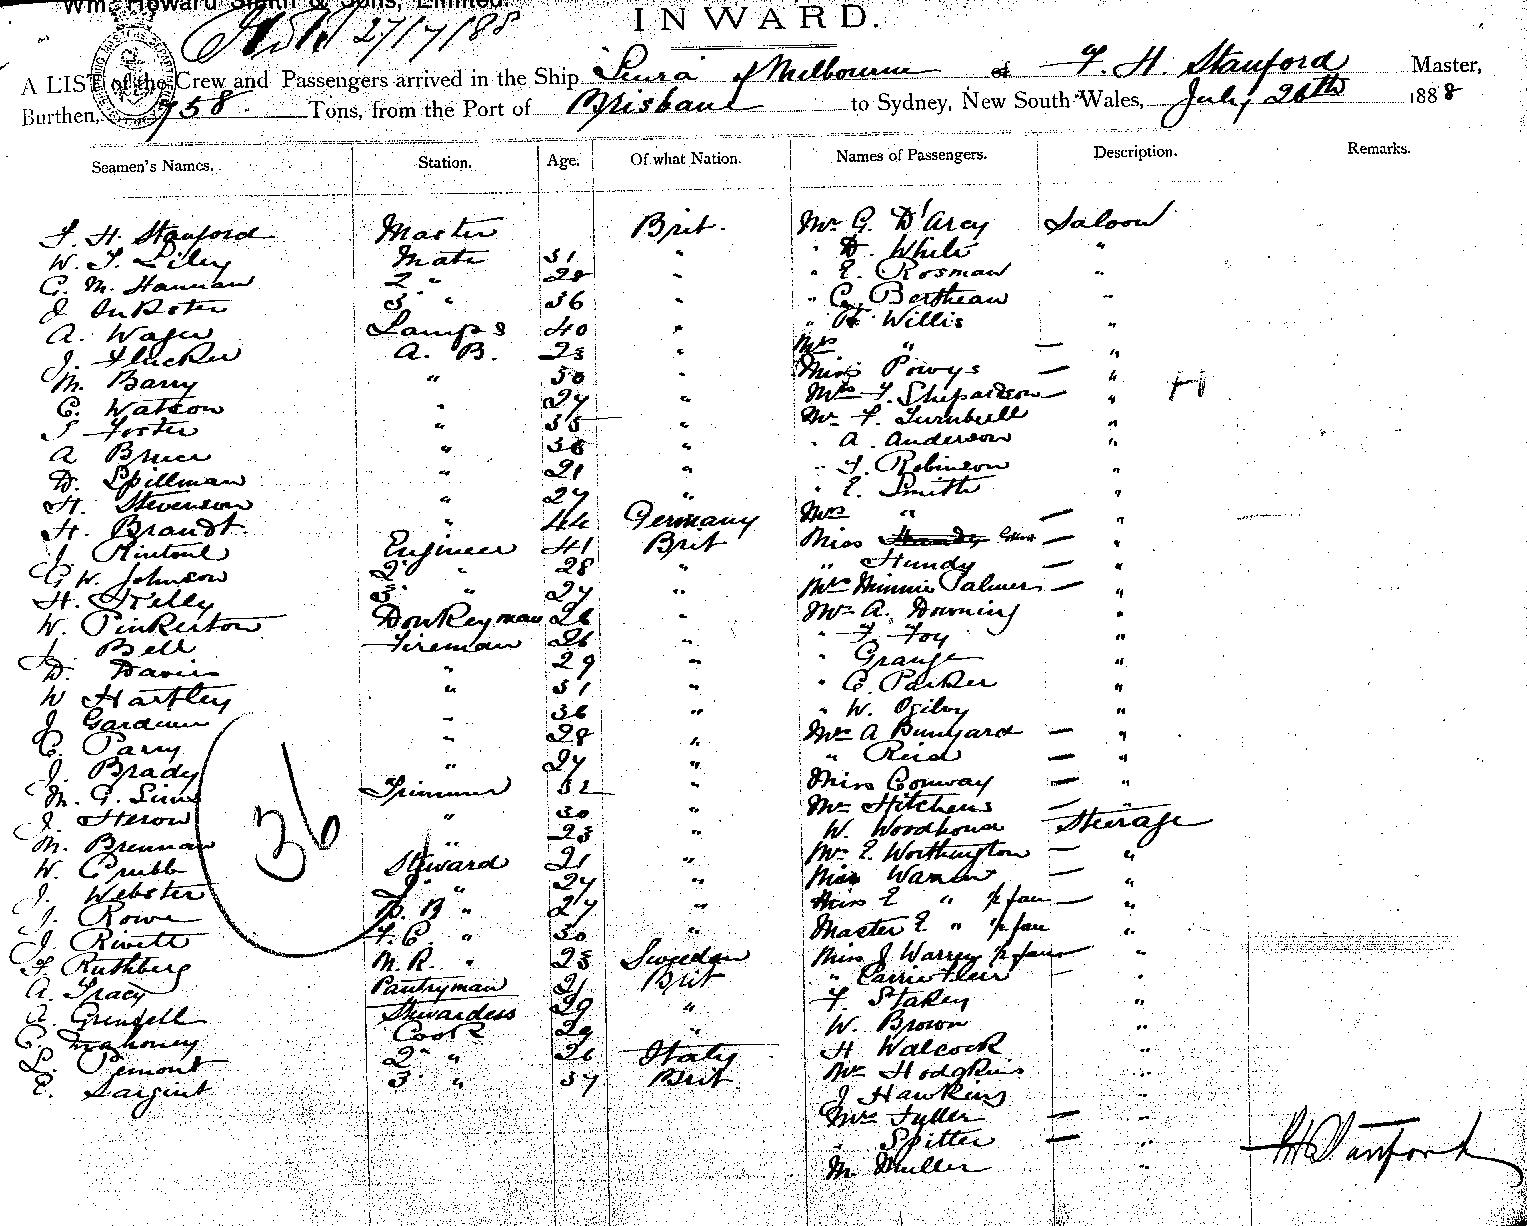 Wm. Howard Smith & Sons, Limited.
27/7/88
INWARD.
A LIST of the Crew and Passengers arrived in the Ship Leura of Melbourne of F. H. Stanford Master,
Burthen, 758 Tons, from the Port of Brisbane to Sydney, New South Wales, July 26th 1888
Seamen's Names. Station. Age. Of what Nation. Names of Passengers. Description. Remarks.
F. H. Stanford Master Brit. Mr G. D'Arcy Saloon
W. T. Liley Mate 31 " " D. White "
C. M. Hannan 2 " 28 " " E. Rosman "
J. 3 " 36 " " C. Bertheau "
A. Wager Lamps 40 " " H. Willis "
J. Flucker A. B. 23 " Mrs " — "
M. Barry " 50 " Miss Powys — "
C. Watson " 27 " Mrs F. Shepardson — "
T Foster " 35 " Mr F. Turnbull "
A Bruce " 38 " " A. Anderson "
D. Spillman " 21 " " T. Robinson "
H. Stevenson " 27 " " E. Smith "
H. Brandt " 44 Germany Mrs " — "
J. Rintoul Engineer 41 Brit Miss — "
G W. Johnson 2 " 28 " " Hundy — "
H. Kelly 3 " 27 " Mrs Minnie Palmer — "
W. Pinkerton Donkeyman 26 " Mr A. Downing "
J. Bell Fireman 26 " " F. Foy "
D. Davis " 29 " " Grange "
W Hartley " 31 " " C. Parker "
J. Gardiner " 36 " " W. Ogilvy "
C. Parry " 28 " Mrs A Bunyard — "
J. Brady " 27 " " Reid — "
M. G. Sims Trimmer 32 " Miss Conway — "
J. Heron " 30 " Mrs Hitchens — "
M. Brennan " 23 " W. Woodhouse Steerage
W. Crubb Steward 21 " Mrs E. Worthington — "
J. Webster 2 " 27 " Miss Warren — "
J. Rowe B. " 27 " Miss E " ½ fare — "
J. Rivett F. C. " 30 " Master E " ½ fare "
F. Ruthberg M. R. " 23 Sweden Miss J Warren ½ fare — "
A. Tracy Pantryman 21 Brit " Carrie —
A. Grenfell Stewardess 29 " F. Stakey "
C. Mahoney Cook 29 " W. Brown "
L. Pemont 2 " 26 Italy H Walcock "
E. Sargint 3 " 37 Brit Mr Hodgkins "
J Hawkins "
Mrs Fyller — "
" Spitter — "
M. Muller "
36
F H Stanford